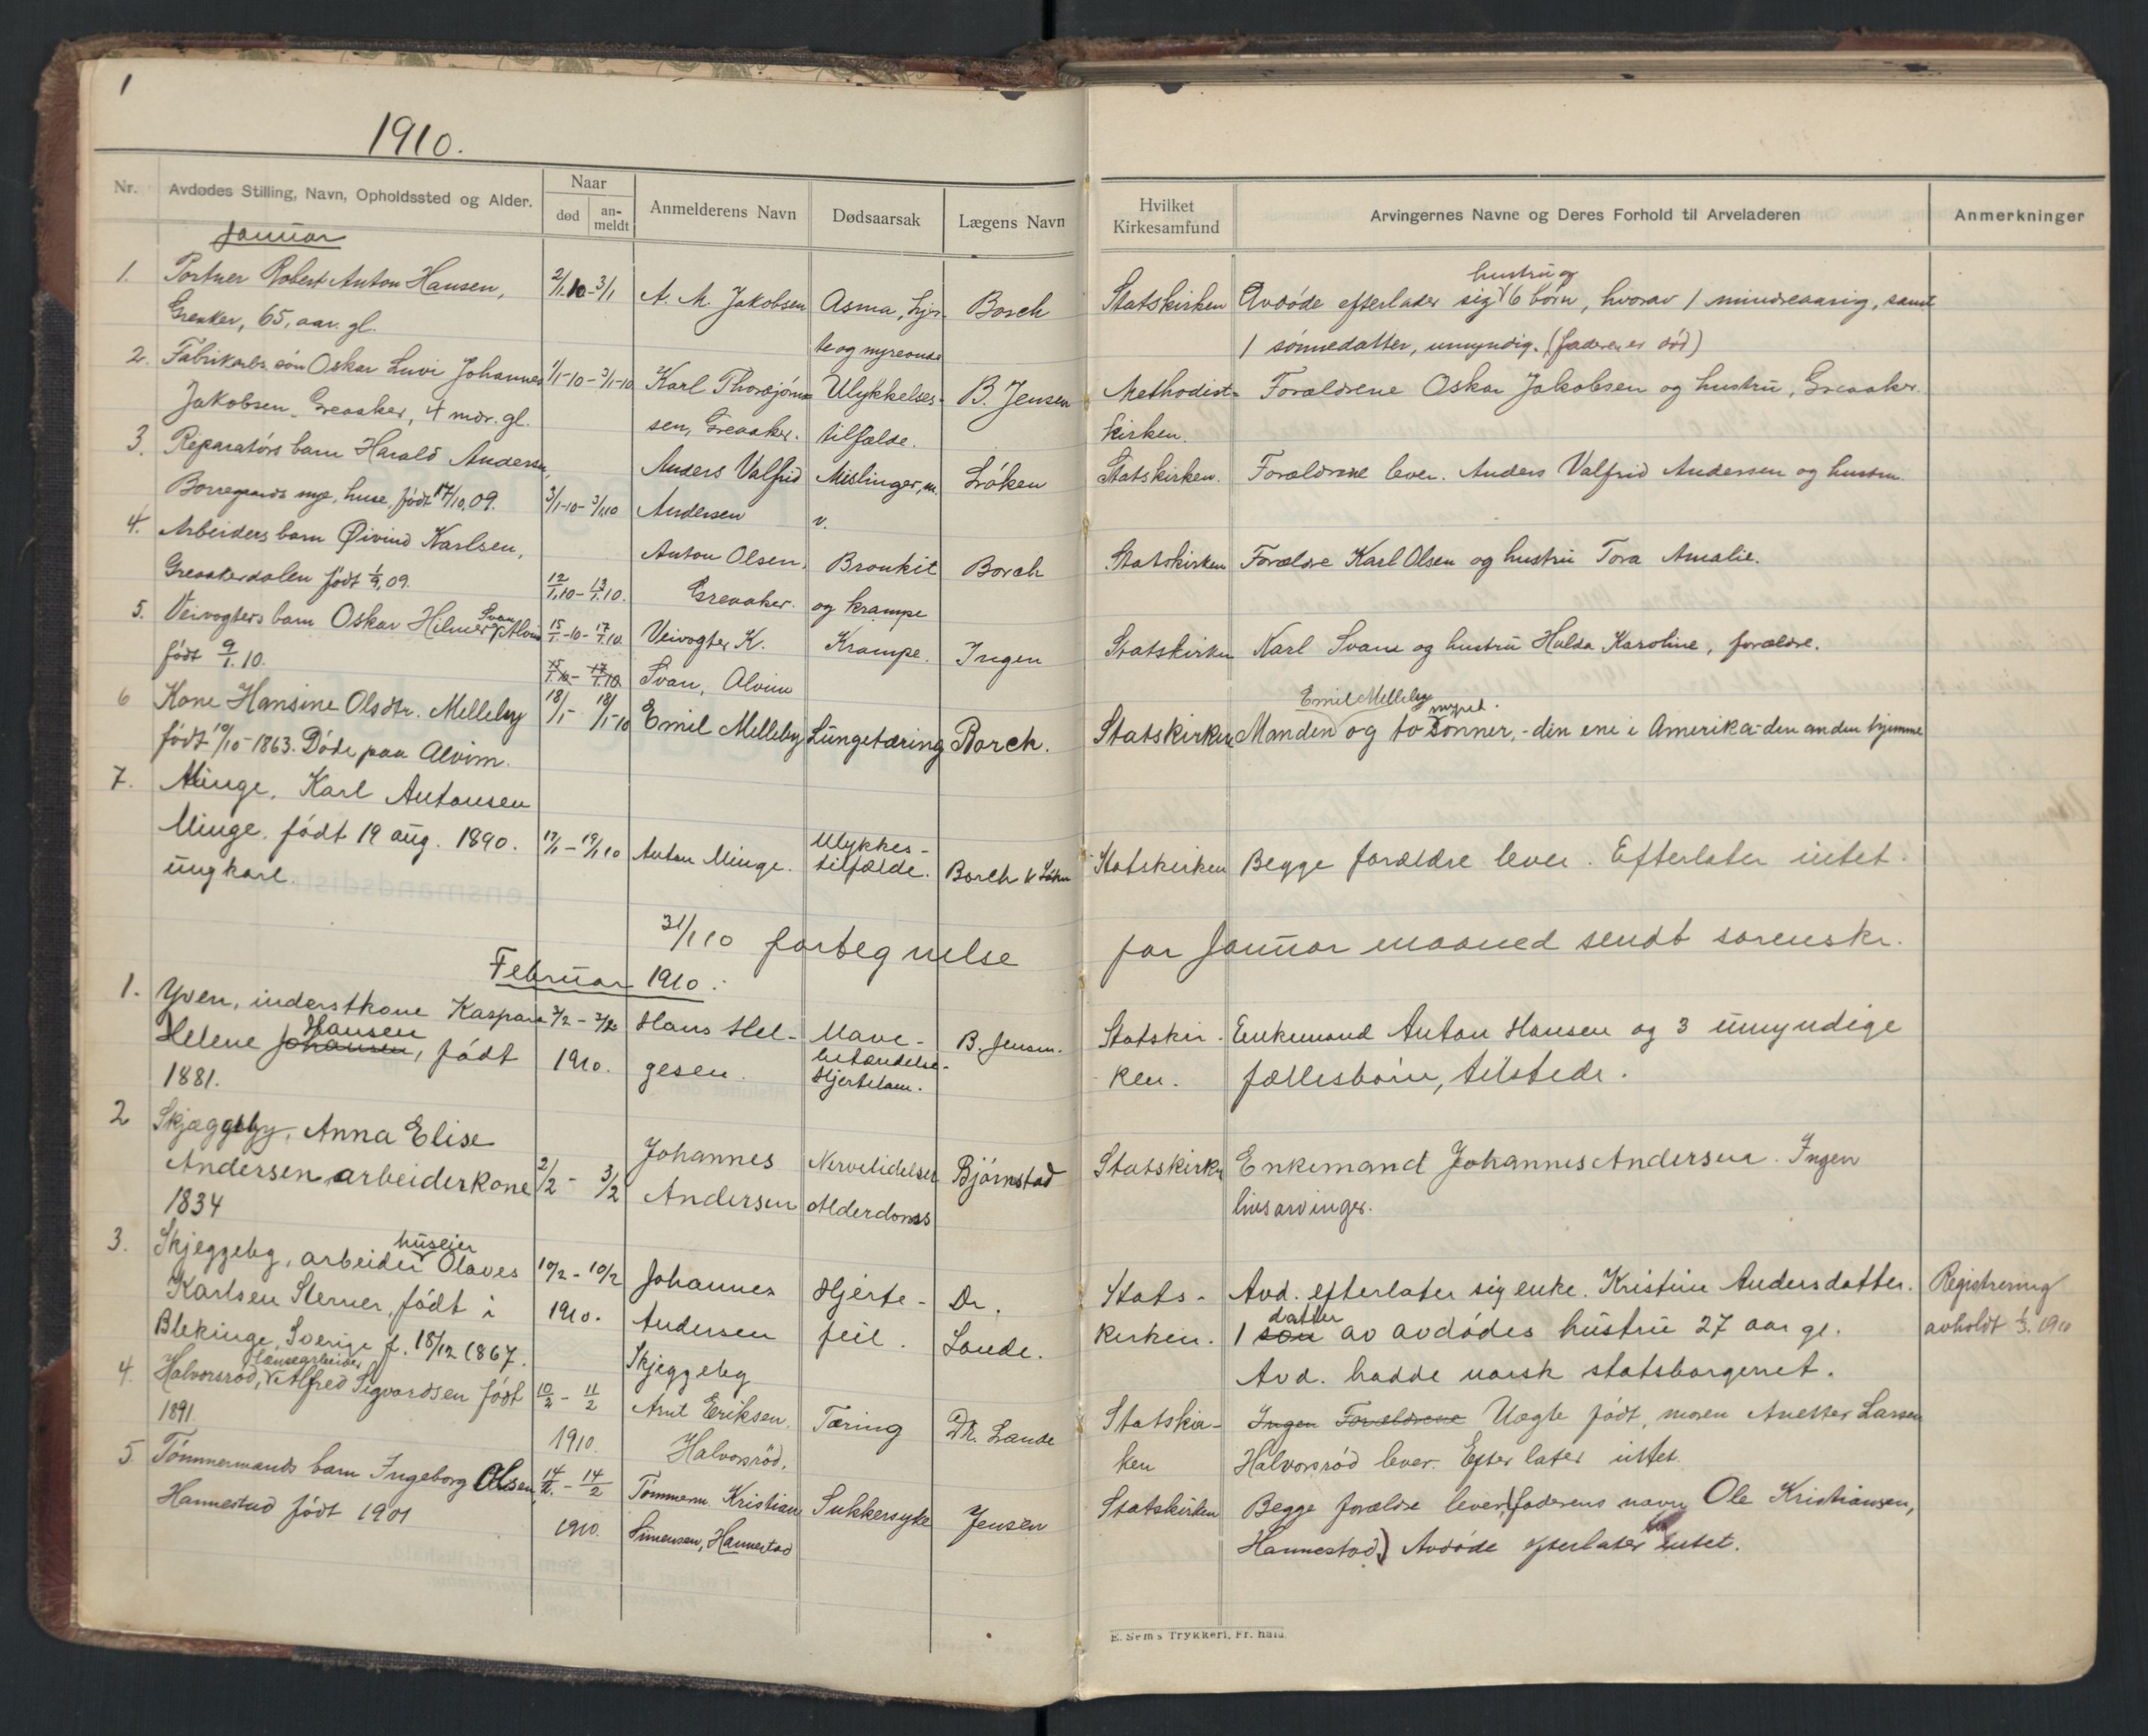 1
1910.
Nr.
Avdødes Stilling, Navn, Opholdssted og Alder.
Naar
død
an-
meldt
Anmelderens Navn
Dødsaarsak
Lægens Navn
Hvilket
Kirkesamfund
Arvingernes Navne og Deres Forhold til Arveladeren
Anmerkninger
Januar
1. Portner Robert Anton Hansen,
Greaker, 65, aar. gl.
2/1-10-3/1
A. M. Jakobsen
Asma, hjer-
te og nyreonde
Borch
Statskirken
hustru og
Avdøde efterlader sig 6 børn, hvorav 1 mindreaarig, samt
1 sønnedatter, umyndig. (faderen er død)
2. Fabrikarb. søn Oskar Luvi Johannes
Jakobsen Greaaker, 4 mdr. gl.
1/1-10-3/1-10
Karl Thorbjørn-
sen, Greaaker.
Ulykkelses-
tilfælde.
B. Jensen
Methodist-
kirken.
Forældrene Oskar Jakobsen og hustru, Greaaker.
3. Reparatørs barn Harald Andersen,
Borregaards nye huse, født 17/10.09.
3/1-10-3/1.10
Anders Valfrid
Andersen
Mislinger, m.
v.
Løken
Statskirken.
Forældrene lever. Anders Valfrid Andersen og hustru
4. Arbeiders barn Øivind Karlsen,
Greaakerdalen født 1/9.09.
12/1.10-13/1.10.
Anton Olsen,
Greaaker.
Bronkit
og krampe
Borch
Statskirken
Forældre Karl Olsen og hustru Tora Amalie.
5. Veivogters barn Oskar Hilmer Svan, Alvim
født 9/1.10.
15/1.-10-17/1.10.
15/1.10-17/1.10
Veivogter K.
Svan, Alvim
Krampe.
Ingen
Statskirken
Karl Svane og hustru Hulda Karoline, forældre.
6 Kone Hansine Olsdtr. Melleby
født 10/10-1863. Døde paa Alvim.
18/1-18/1-10
Emil Melleby
Lungetæring
Borch.
Statskirken
Emil Melleby mynd.
Manden og to sønner, - den ene i Amerika - den anden hjemme
7. Minge, Karl Antonsen
Minge. født 19 aug. 1890.
ungkarl.
17/1-19/1 10
Anton Minge.
Ulykkes-
tilfælde.
Borch & Løken
Statskirken
Begge forældre lever. Efterlater intet.
31/1 10 fortegnelse for Januar maaned sendt sorenskr.
Februar 1910.
1. Yven, inderstkone Kaspara
Hansen
Helene Johansen, født
1881.
2/2-3/2
1910.
Hans Hel-
gesen.
Mave-
betændelse-
Hjertelam.
B. Jensen.
Statskir-
ken.
Enkemand Anton Hansen og 3 umyndige
fællesbørn, tilstede.
2 Skjæggeby, Anna Elise
Andersen arbeiderkone
1834
2/2-3/2
Johannes
Andersen
Nervelidelser
Alderdomss
Bjørnstad
Statskirken
Enkemand Johannes Andersen. Ingen
livsarvinger.
3. huseier
Skjeggeby, arbeider Olaves
Karlsen Sterner, født i
Blekinge, Sverige f. 18/12 1867.
10/2-10/2
1910.
Johannes
Andersen
Skjeggeby
Hjerte-
feil.
Dr.
Lande.
Stats-
kirken.
Avd. efterlater sig enke. Kristine Andersdatter.
datter
1 søn av avdødes hustru 27 aar gl.
Avd. hadde norsk statsborgerret.
Registrering
avholdt 1/3. 1910
4. Lænsearbeider
Halvorsrød, Alfred Sigvardsen født
1891
10/2-11/2
1910.
Arnt Eriksen
Halvorsrød.
Tæring
Dr. Lande
Statskir-
ken
Ingen Forældrene Uægte født, moren Anette Larsen
Halvorsrød lever. Efterlater intet.
5. Tømmermands barn Ingeborg Olsen,
Hannestad født 1901
14/2.-14/2
1910.
Tømmerm. Kristian
Simensen, Hannestad
Sukkersyke
Jensen
Statskirken
Begge forældre lever (faderens navn Ole Kristiansen,
Hannestad) Avdøde efterlater intet.
E. Sem's Trykkeri, Fr.hald.